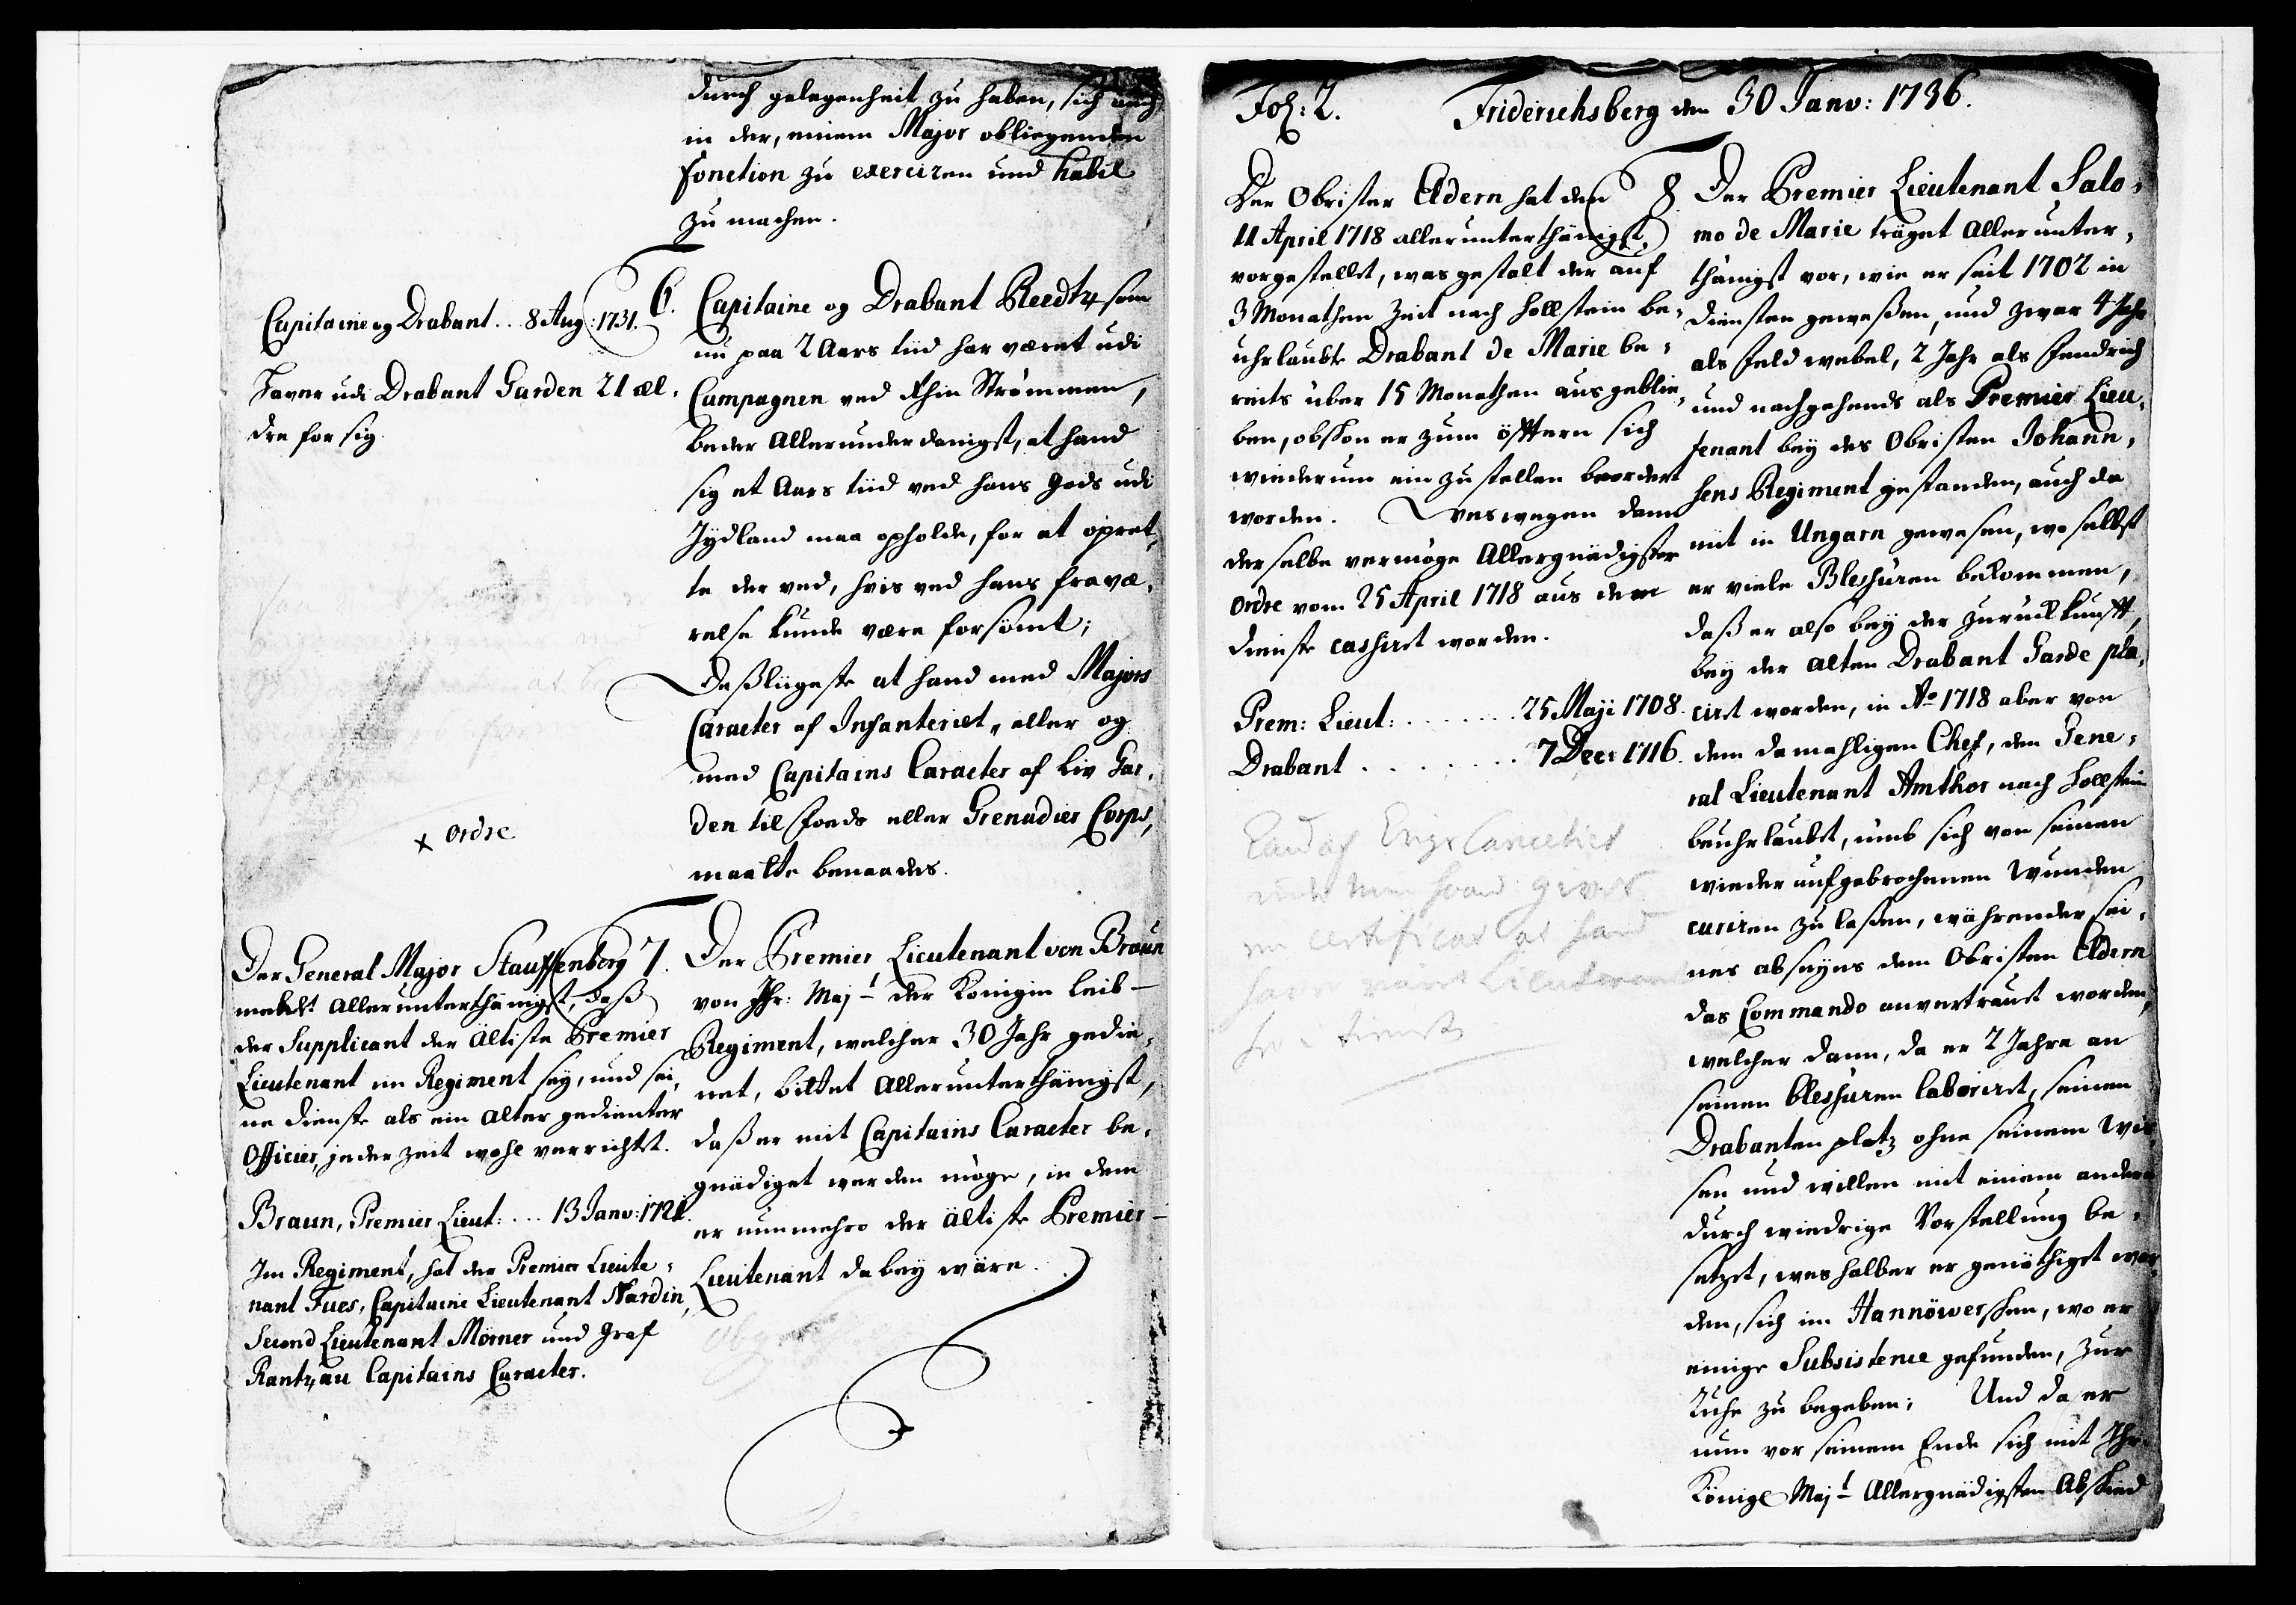 durch gelegenheit zu haben, sich auch
in der, einem Major obliegenden
fonction zu exerciren und habil
zu machen.
Capitaine og Drabant... 8 Aug: 1731.
Haver udi Drabant Garden 21 æl,
dre for sig.
6. Capitaine og Drabant Reedtz som
nu paa 2 Aars tiid har været udi
Campagnen ved Rhin Strømmen,
beder Allerunderdanigst, at hand
sig et Aars tiid ved hans Gods udi
Jydland maa opholde, for at opret,
te der ved, hvis ved hans fravæ,
relse kunde være forsömt;
Deßligeste at hand med Majors
Caracter af Infanteriet, eller og
med Capitains Caracter af Liv Gar,
den til foeds eller Grenadier Corps,
maatte benaades.
x ordre
Der General Major Stauffenberg
meldet Allerunterthänigst, daß
der Supplicant der Ältiste Premier
Lieutenant im Regiment sey, und sei,
ne dienste als ein Alter gedienter
Officier, jederzeit wohl verrichtet.
Braun, Premier Lieut:... 13 Janv: 1721.
Im Regiment, hat der Premier Lieute:
nant Fues, Capitaine Lieutenant Nardin,
Second Lieutenant Mörner und Graf
Rantzau Capitains Caracter.
7. Der Premier Lieutenant von Braun
von Ihr: Majt der Königin Leib-
Regiment, welcher 30 Jahr gedie,
net, bittet Allerunterthänigst,
daß er mit Capitains Caracter be,
gnädiget werden möge, in dem
er nunmehro der ältiste Premier-
Lieutenant dabey wäre.
Fol: 2. Friderichsberg den 30 Janv: 1736.
Der Obrister Eldern hat den
11 April 1718 allerunterthänigst
vorgestellet, was gestalt der auf
3 Monathen Zeit nach Hollstein be,
uhrlaubte Drabant de Marie be:
reits über 15 Monathen ausgeblie,
ben, obschon er zum öfftern sich
wiederum ein zu stellen beordert
worden. Weswegen dann
derselbe vermöge Allergnädigster
Ordre vom 25 April 1718 aus dem
dienste cassiret worden.
Prem: Lieut: ....... 25 Maji 1708.
Drabant ........ 7 Dec: 1716.
en certificat at hand
8. Der Premier Lieutenant Salo,
mo de Marie träget Allerunter,
thänigst vor, wie er seit 1702 in
diensten geweßen, und zwar 4 Jahr
als Feldwebel, 2 Jahr als Fendrich
und nachgehends als Premier Lieu,
tenant bey des Obristen Johann,
sens Regiment gestanden, auch da
mit in Ungarn gewesen, woselbst
er viele Blessuren bekommen,
daß er also bey der Zurückkunfft,
bey der Alten Drabant Garde pla,
ciret worden, in Ao 1718 aber von
dem damahligen Chef, den Gene,
ral Lieutenant Amthor nach Hollstein
beuhrlaubet, umb sich von seinen
wieder aufgebrochenen Wunden
curiren zu laßen, währender sei,
nes abseyns dem Obristen Eldern
das Commando anvertraut worden,
welcher dann, da er 2 Jahre an
seinen blessuren laboriret, seinen
Drabanten platz ohne seinem Wis
sen und willen mit einem andern
durch wiedrige Vorstellung be,
setzet, weshalber er genöthiget wor,
den, sich im Hannöwerschen, wo er
einige Subsistence gefunden, zur
Ruhe zu begeben; Und da er
nun vor seinem Ende sich mit Ihr
Königl Majt Allergnädigsten Abschied